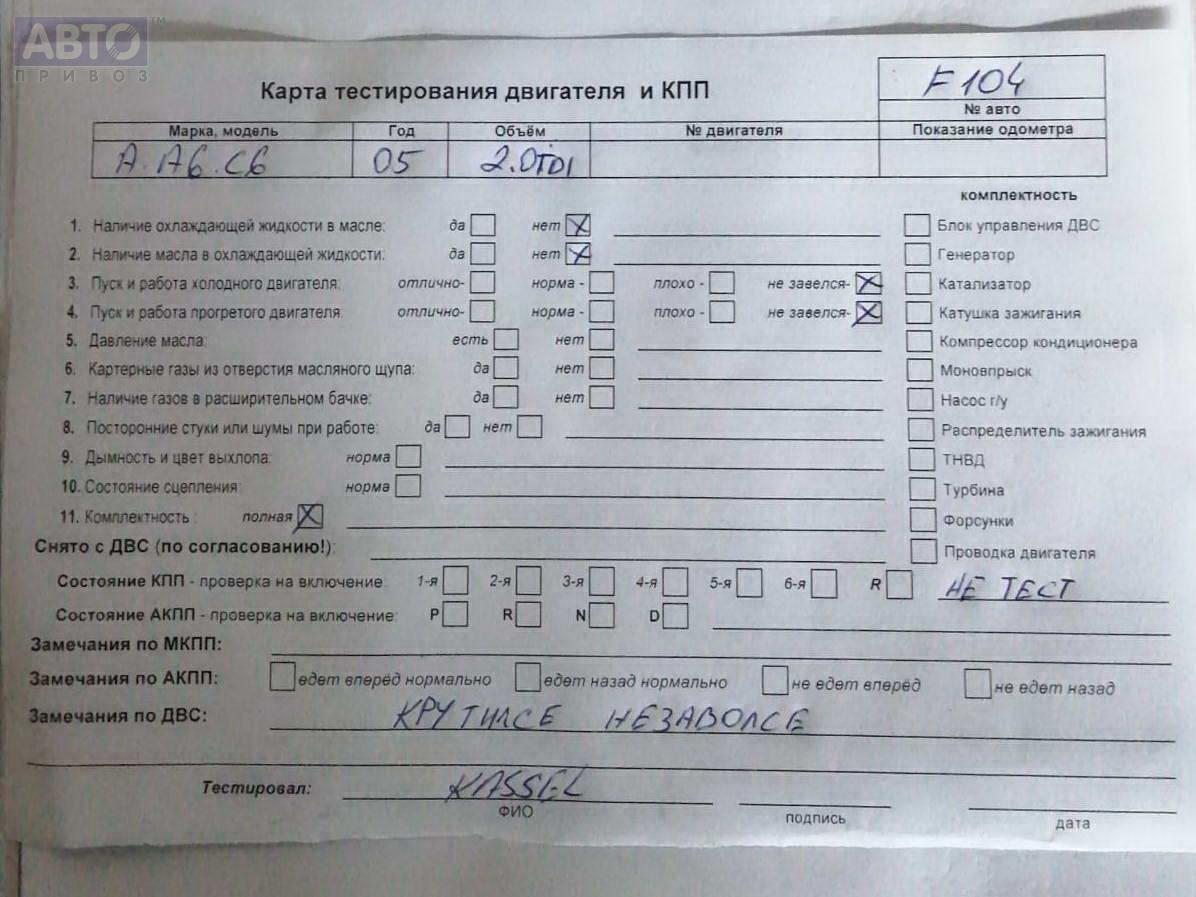 АВТО ™
ПРИВОЗ
Карта тестирования двигателя и КПП
F104
№ авто
Марка, модель Год Объём № двигателя Показание одометра
A.A6.C6 05 2.0TDI
комплектность
1. Наличие охлаждающей жидкости в масле: да нет X Блок управления ДВС
2. Наличие масла в охлаждающей жидкости: да нет X Генератор
3. Пуск и работа холодного двигателя: отлично- норма - плохо - не завелся- X Катализатор
4. Пуск и работа прогретого двигателя: отлично- норма - плохо - не завелся- X Катушка зажигания
5. Давление масла: есть нет Компрессор кондиционера
6. Картерные газы из отверстия масляного щупа: да нет Моновпрыск
7. Наличие газов в расширительном бачке: да нет Насос г/у
8. Посторонние стуки или шумы при работе: да нет Распределитель зажигания
9. Дымность и цвет выхлопа: норма ТНВД
10. Состояние сцепления: норма Турбина
11. Комплектность : полная X Форсунки
Снято с ДВС (по согласованию!): Проводка двигателя
Состояние КПП - проверка на включение: 1-я 2-я 3-я 4-я 5-я 6-я R НЕ ТЕСТ
Состояние АКПП - проверка на включение: P R N D
Замечания по МКПП:
Замечания по АКПП: едет вперёд нормально едет назад нормально не едет вперёд не едет назад
Замечания по ДВС: КРУТИЛСЕ НЕЗАВОЛСЕ
Тестировал: KASSEL
ФИО подпись дата